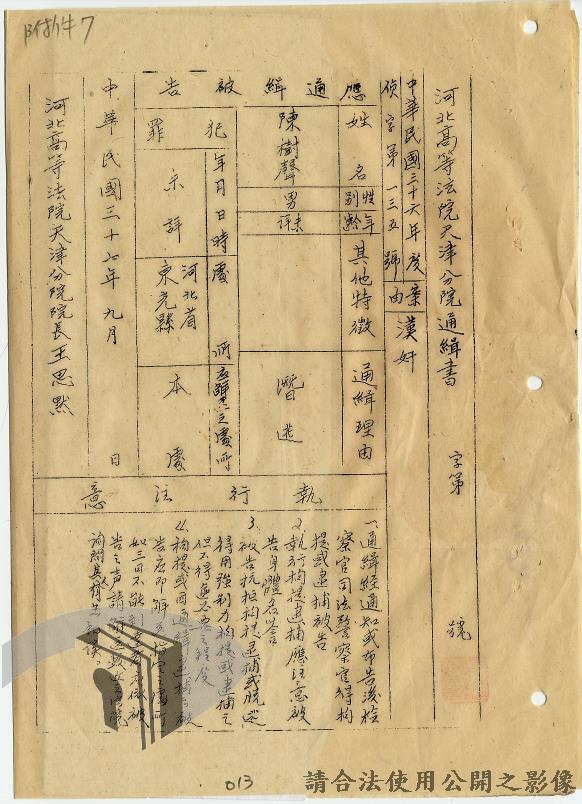 附件7
河北高等法院天津分院通緝書
字第　號
中華民國三十六年度
偵字第一三五號
案由
漢奸
應通緝被告
姓名
性別
年齡
其他特徵
通緝理由
陳樹聲
男
未詳
潛逃
犯罪
年月日時
處所
應解送之處所
未詳
河北省
東光縣
本處
中華民國三十七年九月　日
河北高等法院天津分院院長王思默
執行注意
一、通緝經通知或布告後檢
察官司法警察官得拘
提或逮捕被告
2、執行拘提逮捕應注意被
告身體名譽
3、被告抗拒拘提逮捕或脫逃
得用強制力拘提或逮捕之
但不得逾必要之程度
4、拘提或因通緝逮捕之被
告應即解送指定之處所
如三日不能到
告之聲請
詢問其
013
請合法使用公開之影像